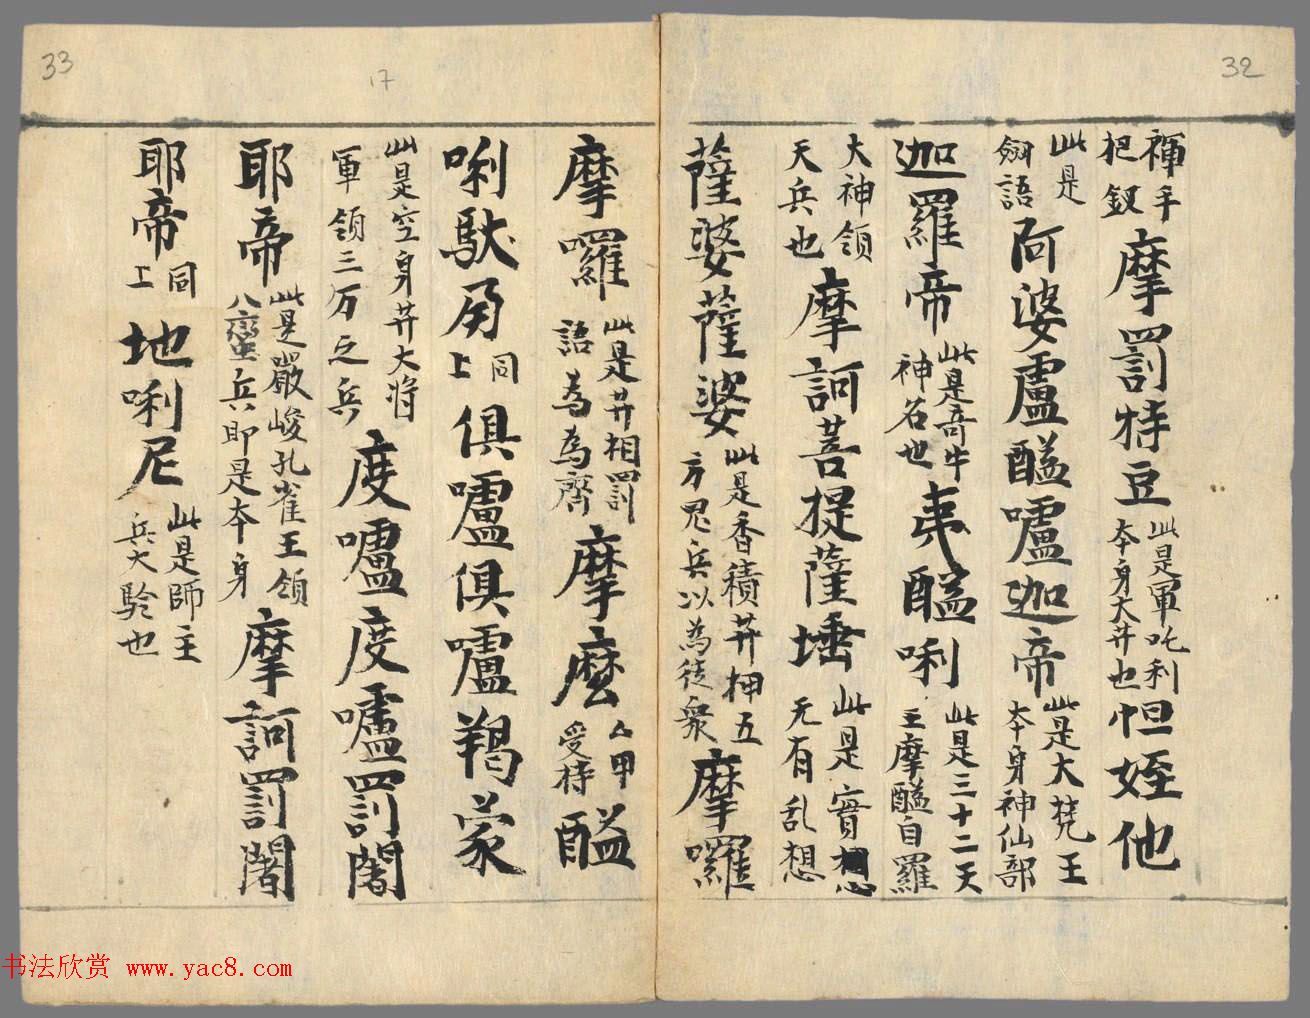 32
褌手
把釵
摩罰特豆
此是軍吒利
本身大井也
怛姪他
此是
劒語
阿婆盧醯嚧迦帝
此是大梵王
本身神仙部
迦羅帝
此是奇牛
神名也
夷醯唎
此是三十二天
王摩醯自羅
大神領
天兵也
摩訶菩提薩埵
此是實想
无有乱想
薩婆薩婆
此是香積井押五
方鬼兵以為徒衆
摩囉
33
17
摩囉
此是井相罰
語為為齊
摩麼
厶甲
受持
醯
唎馱
同
上
俱嚧俱嚧羯蒙
此是空身井大將
軍領三万之兵
度嚧度嚧罰闍
耶帝
此是嚴峻孔雀王領
八蠻兵即是本身
摩訶罰闍
耶帝
同
上
地唎尼
此是師主
兵大騐也
书法欣赏 www.yac8.com